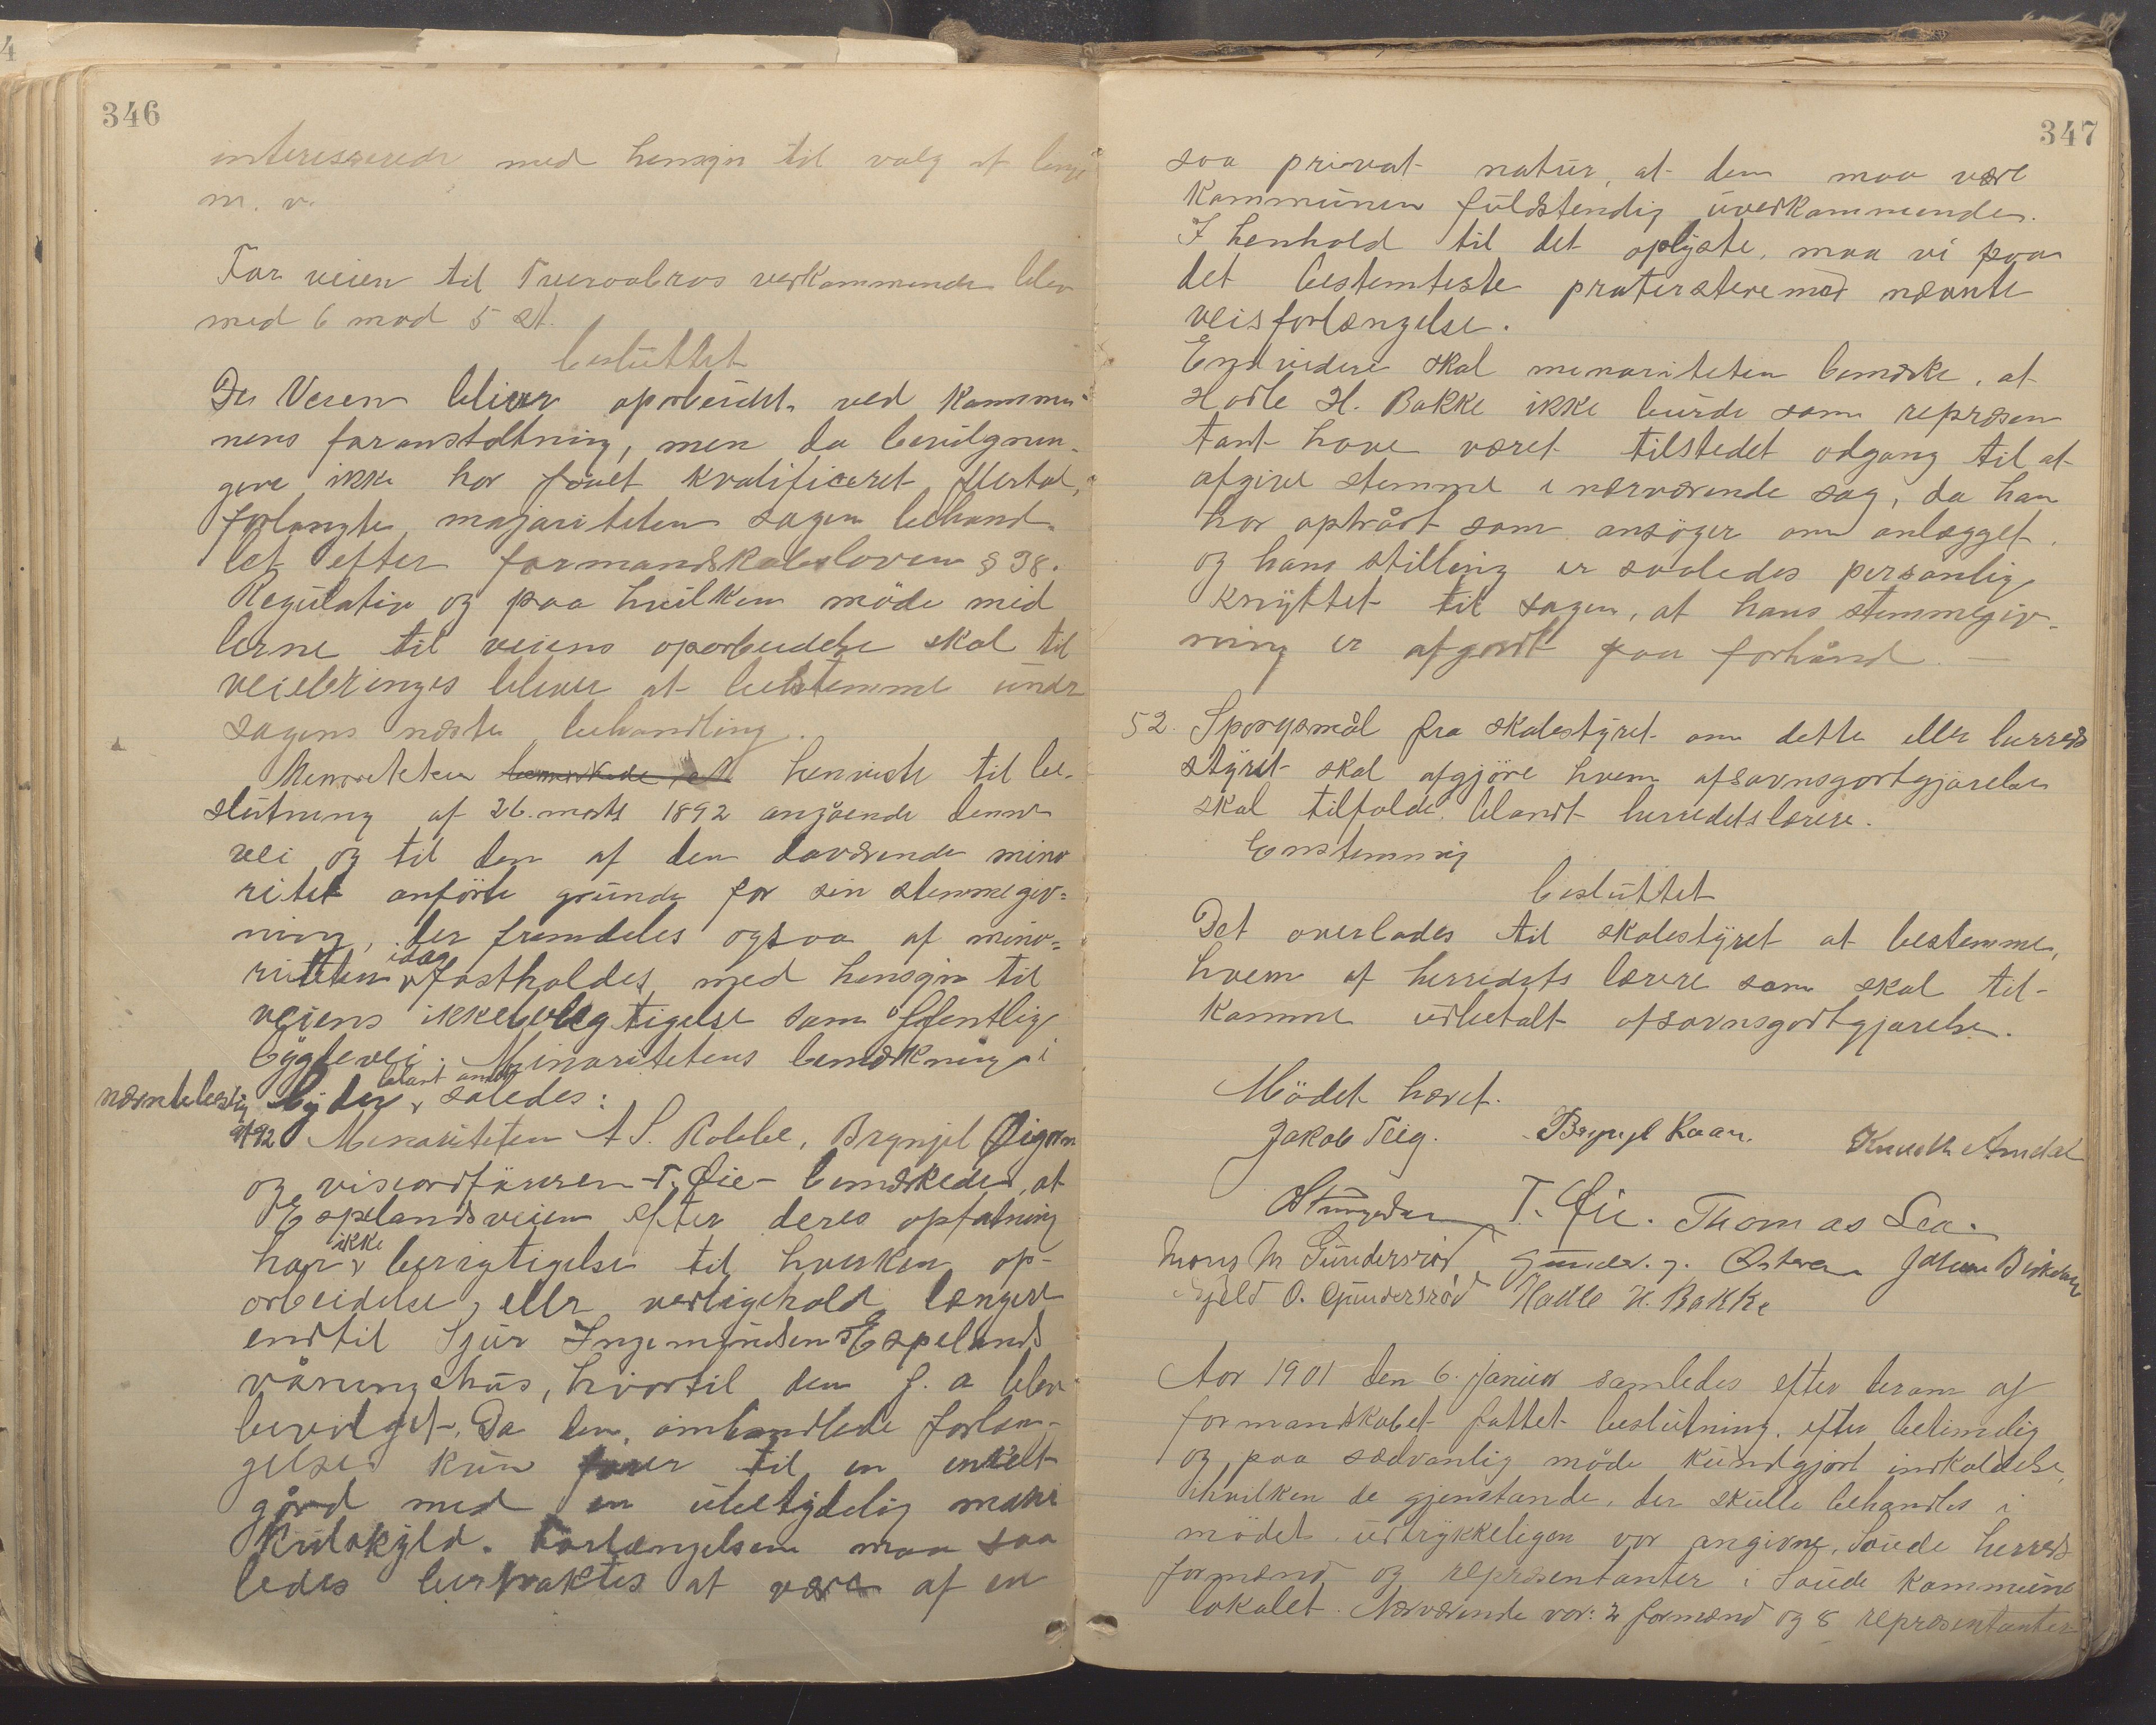 346
interesserede med hensyn til valg af linje
m. v.
For veien til Tveraabros vedkommende blev
med 6 mod 5 st.
besluttet
De Veien bliver oparbeidet ved kommu-
nens foranstaltning, men da bevilgnin-
gene ikke har faaet kvalificeret flertal,
forlangte majoriteten sagen behand-
let efter formandskabsloven § 38.
Regulativ og paa hvilken måde mid
lerne til veiens oparbeidelse skal til
veiebringes bliver at bestemme under
sagens næste behandling.
Menoriteten bemærkede, at henviste til be-
slutning af 26. marts 1892 angående denne
vei og til den af den daværende mino
ritet anförte grunde for sin stemmegiv=
ning, der fremdeles ogsaa af mino=
riteten idag fastholdes, med hensyn til
veiens ikkeberegtigelse som offentlig
bygdevei. Minoritetens bemærkning i
nævnte beslutn. lyder blant andet således:
Menoriteten A S. Rabbe, Brynjel Öigarn
og viseordfüreren T. Øie - bemærkede, at
Espelandsveien efter deres opfatning
har ikke berigtigelse til hverken op-
arbeidelse eller vedligehold længere
end til Sjur Ingemundsen Espelands
våningshus, hvortil den f. a blev
bevilget. Da den omhandlede forlæn-
gelse kun fører til en enkelt
gård med en ubetydelig matri
kulskyld. Forlængelsen maa saa
ledes betraktes at være af en
347
saa privat natur, at den maa være
Kommunen fuldstendig uvedkommende.
I henhold til det oplyste, maa vi paa
det bestemteste protestere mod nævnte
veisforlængelse.
Endvidere skal menoriteten bemærke, at
Hadle H. Bakke ikke burde som repræsen
tant have været tilstedet adgang til at
afgive stemme i nærværende sag, da han
har optrådt som ansöger om anlægget,
og hans stilling er saaledes personlig
knyttet til sagen, at hans stemmegiv-
ning er afgordt paa forhånd. —
52. Sporgsmål fra skolestyret om dette eller herreds
styret skal afgjöre hvem afsavnsgodtgjørelse
skal tilfalde blandt herredets lærere.
Enstemmig
besluttet
Det overlades til skolestyret at bestemme,
hvem af herredets lærere som skal til-
komme udbetalt afsavnsgodtgjørelse.
Mödet hævet.
Jakob Teig. Brynjel Kaan. Knud Th Amdal
T. Øie. Thomas Lea.
Mons M Gundersrød Gunder. J. Østeraa Johan Birkeland
Gjeld O. Gundersrød Hadle H. Bakke
Aar 1901 den 6. januar samledes efter deraw af
formandskabet fattet beslutning, efter betimelig
og paa sædvanlig måde kundgjort indkaldelse,
ihvilken de gjenstande, der skulle behandles i
mödet udtrykkeligen var angivne, Saude herreds
formænd og repræsentanter i Saude kommune
lokalet. Nærværende var: 4 formænd og 8 repræsentanter